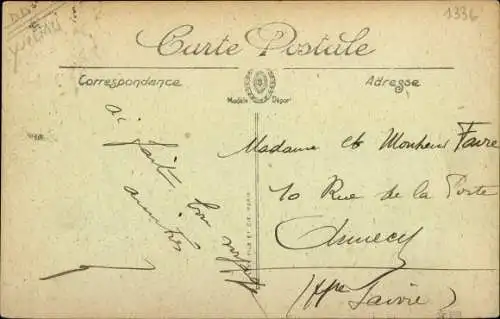 1336
Carte Postale
Correspondance
Adresse
Modèle Déposé
ai fait bon voyage
amitiés
Madame et Monsieur Favre
10 Rue de la Poste
Annecy
(Hte Savoie)